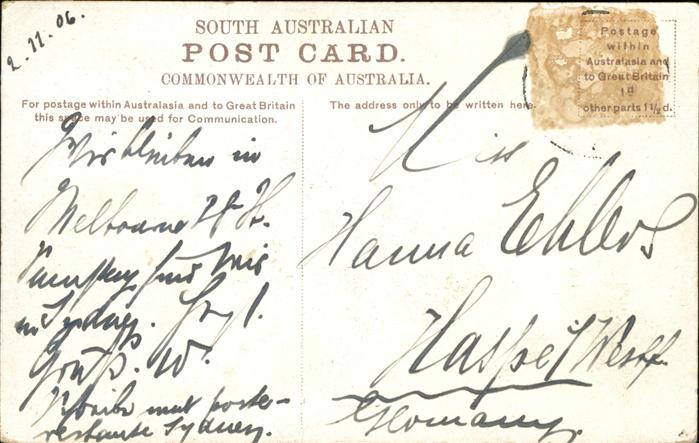 2.11.06.
SOUTH AUSTRALIAN
POST CARD.
COMMONWEALTH OF AUSTRALIA.
Postage
within
Australasia and
to Great Britain
1d
other parts 1½d.
For postage within Australasia and to Great Britain
this space may be used for Communication.
Wir bleiben in
Melbourne 28 St.
sind wir
in Sydney. Hrzl.
Gruß. W.
Schreibe mal poste-
restante Sydney.
The address only to be written here.
Miss
Hanna Ehlers
Haspe i/Westf.
Germany.